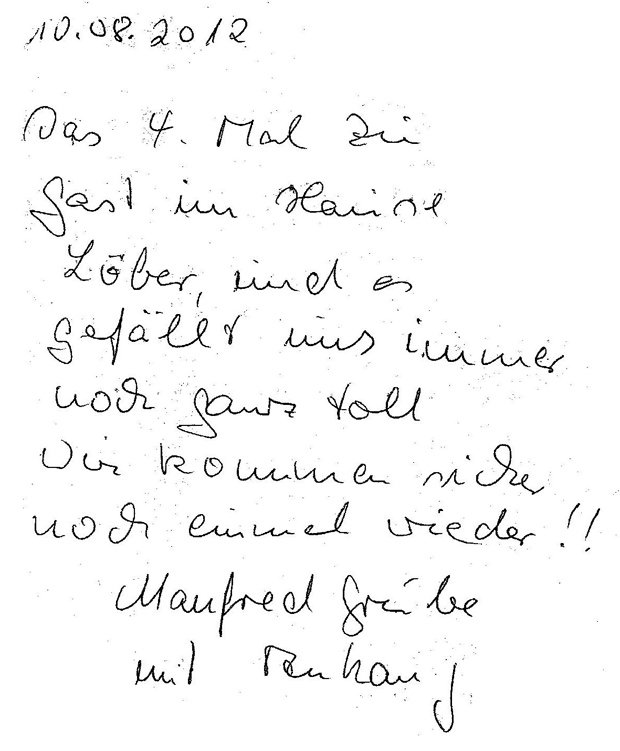 10.08.2012
Das 4. Mal zu
Gast im Hause
Löber, und es
gefällt uns immer
noch ganz toll
Wir kommen sicher
noch einmal wieder!!
Manfred
mit Anhang